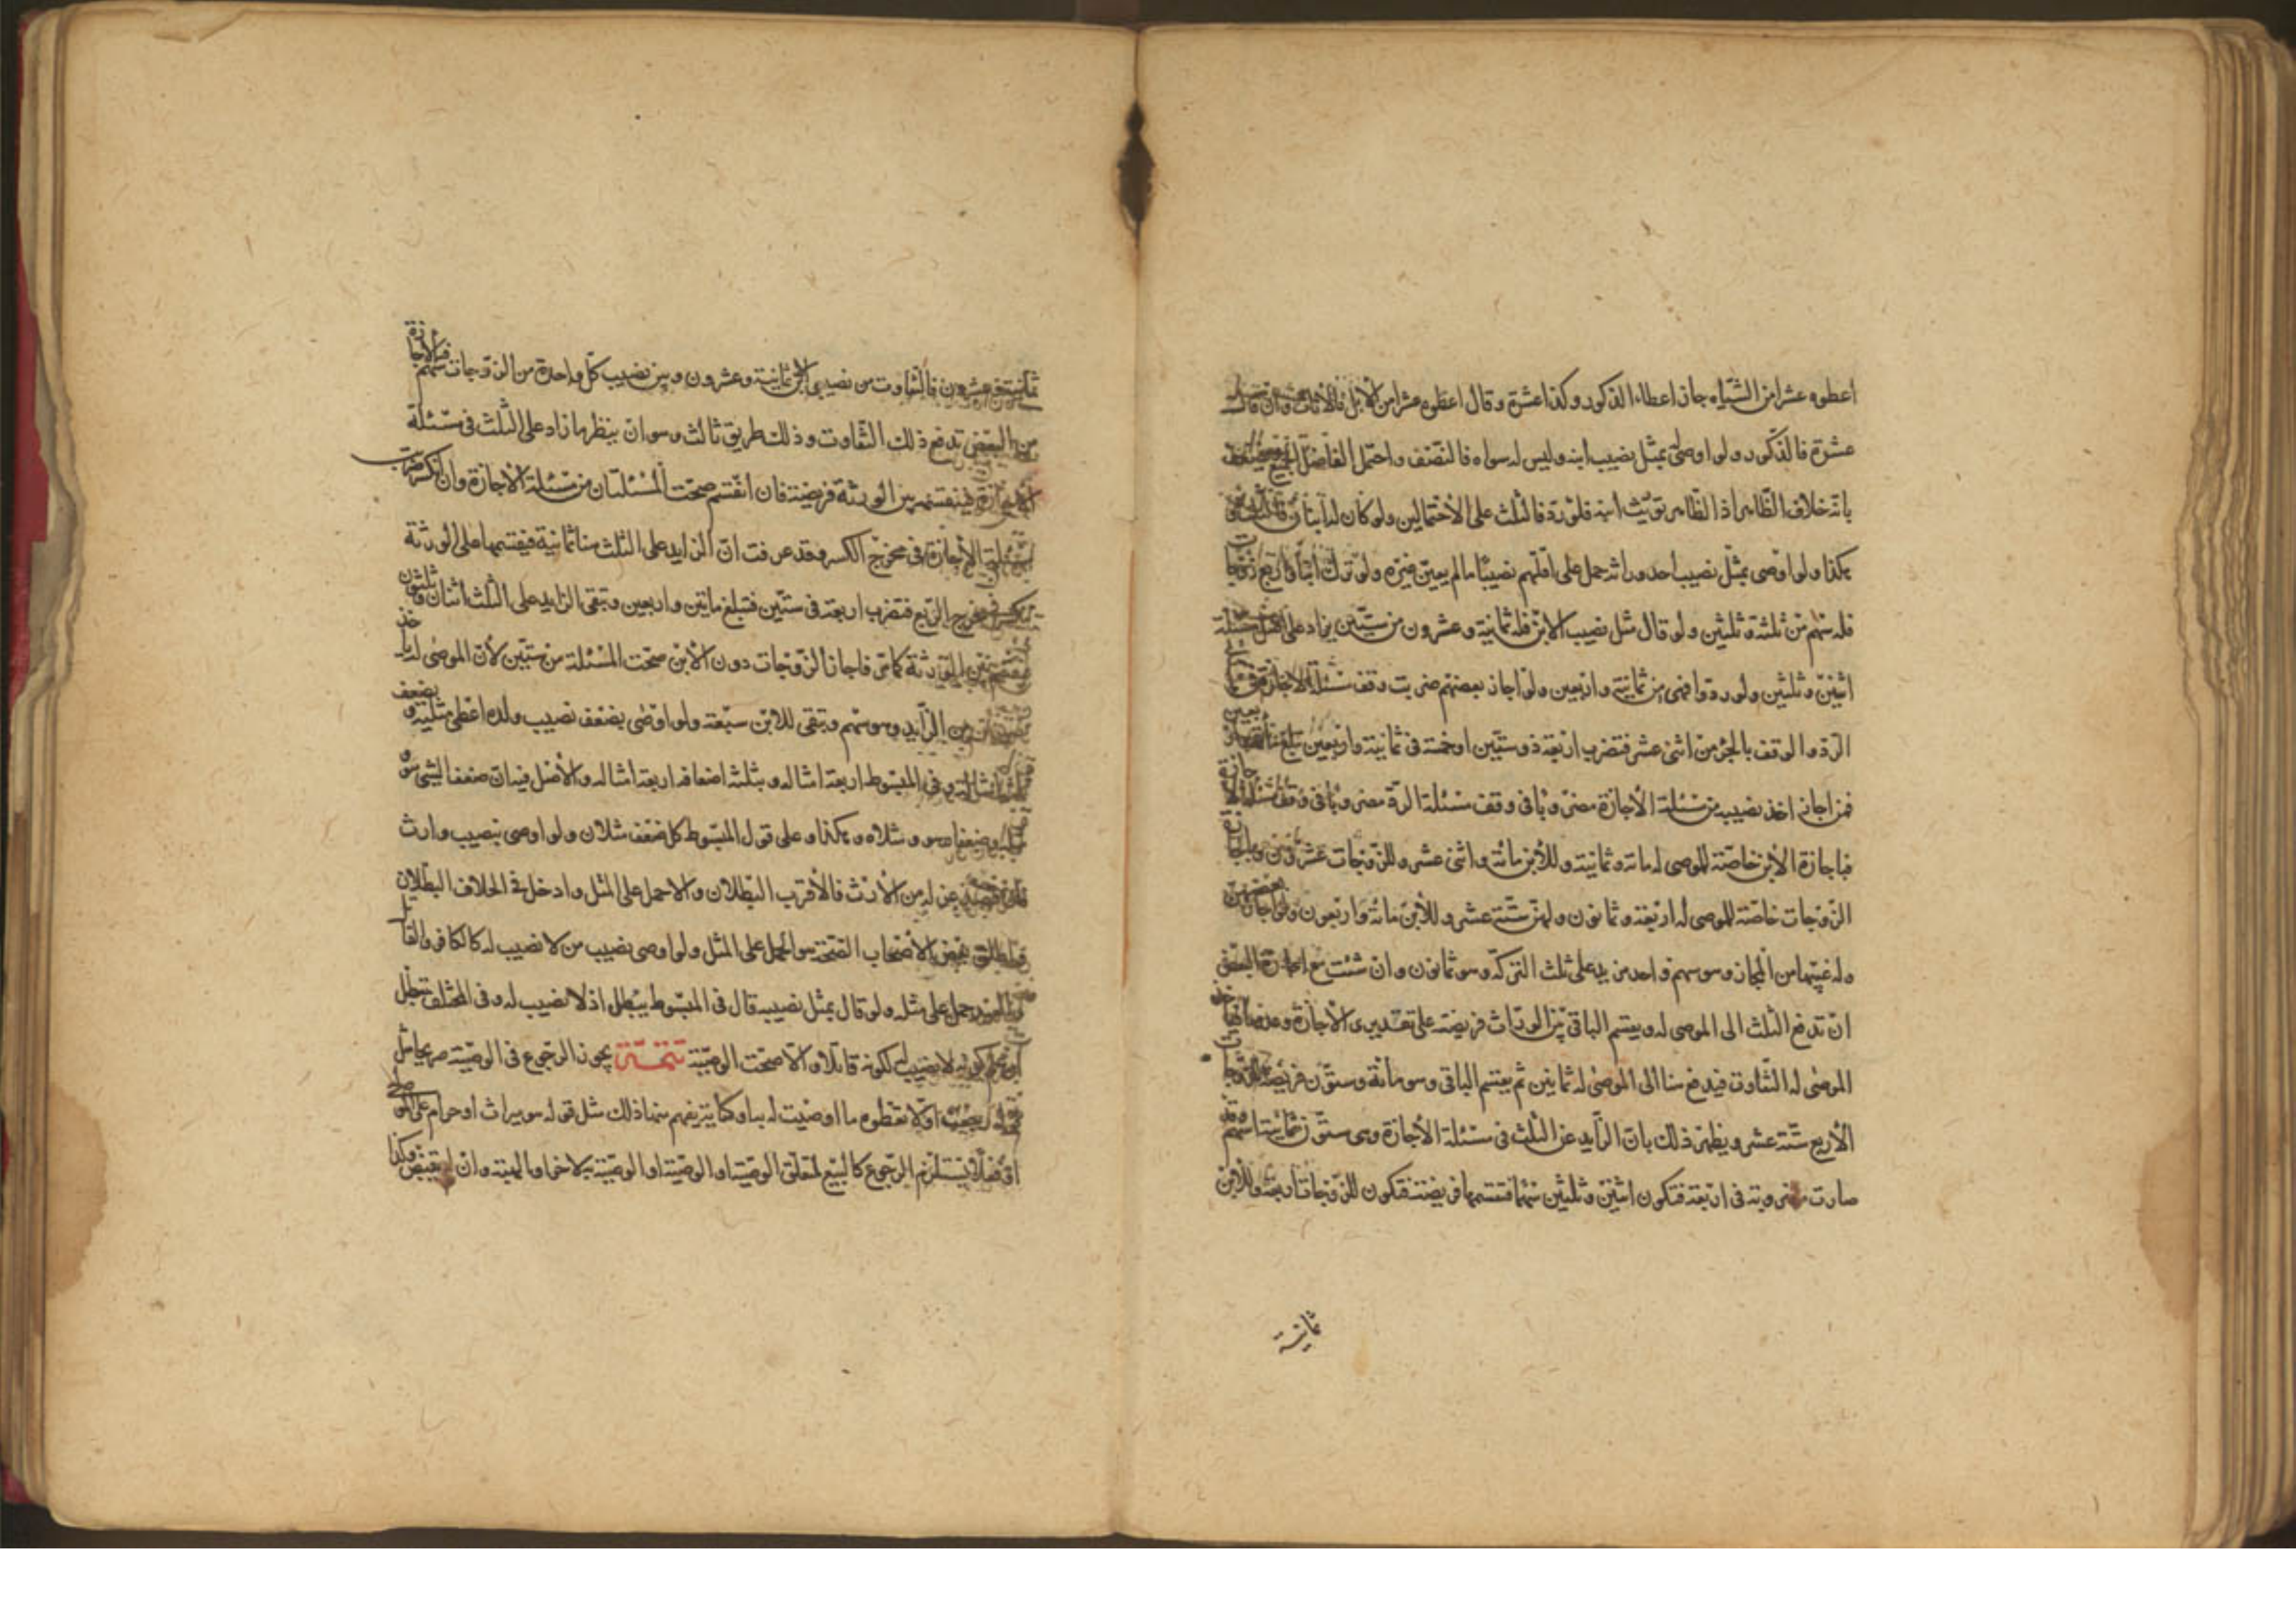 اعطوه عشرا من الشياه جاز اعطاء الذكور وكذا عشرة وقال اعطوه عشرا من الابل فالاناث وان قال
عشرة فالذكور ولو اوصى بمثل نصيب ابنه وليس له سواه فالنصف واحتمل الفاضل الجميع
بانه خلاف الظاهر اذ الظاهر توريث ابنه فلورد فالثلث على الاحتمالين ولو كان له ابنان فالثلث
هكذا ولو اوصى بمثل نصيب احد وراثه حمل على اقلهم نصيبا ما لم يعين غيره ولو ترك ابنا واربع زوجات
فله سهم من ثلثة وثلثين ولو قال مثل نصيب الابن فله ثمانية وعشرون من ستين يزاد على
اثنين وثلثين ولو ردوا فهى من ثمانية واربعين ولو اجاز بعضهم ضربت وفق مسئلة الاجازة فى وفق
الرد والوفق بالجزء من اثنى عشر فتضرب اربعة فى ستين او خمسة فى ثمانية واربعين تبلغ مأتين واربعين
فمن اجاز اخذ نصيبه من مسئلة الاجازة مضروبا فى وفق مسئلة الرد مضروبا فى وفق مسئلة الاجازة
فباجازة الابن خاصة للموصى له مائة وثمانية وللابن مائة واثنى عشر وللزوجات عشرون وباجازة
الزوجات خاصة للموصى له اربعة وثمانون ولهن ستة عشر وللابن مائة واربعون ولو اجاز بعضهن
وله غيبتها من المجاز وهو سهم واحد من يد على ثلث التركة وهو ثمانون وان شئت مع اجازة البعض
ان تدفع الثلث الى الموصى له ويقسم الباقى بين الوراث فريضة على تقديرى الاجازة وعدمها
الموصى له التفاوت فيدفع هنا الى الموصى له ثمانين ثم يقسم الباقى وهو مائة وستون فريضة للزوجات
الاربع ستة عشر ويظهر ذلك بان الزايد عن الثلث فى مسئلة الاجازة وهى ستون ثمانية اسهم وقد
صارت مضروبة فى اربعة فتكون اثنين وثلثين سهما فتقسمها فريضة فتكون للزوجات اربعة وللابن
ثمانية
ثمانية وعشرون فالتفاوت من نصيبى الابن ثمانية وعشرون وبين نصيب كل واحدة من الزوجات سهم فبالاجازة
من البعض تدفع ذلك التفاوت وذلك طريق ثالث وهو ان ينظر ما زاد على الثلث فى مسئلة
الاجازة فينقسم بين الورثة فريضة فان انقسم صحت المسئلتان من مسئلة الاجازة وان انكسر ضرب
مسئلة الاجازة فى مخرج الكسر وقد عرفت ان الزايد على الثلث هنا ثمانية فيقسمها على الورثة
تنكسر فى مخرج الربع فتضرب اربعة فى ستين فتبلغ مائتين واربعين وتبقى الزايد على الثلث اثنان وثلثون
بين الورثة كما مر فاجاز الزوجات دون الابن صحت المسئلة من ستين لان الموصى له يأخذ
من الزايد وهو سهم وتبقى للابن سبعة ولو اوصى بضعف نصيب ولده اعطى مثليه وبضعف
ثلثة امثاله وفى المبسوط اربعة امثاله وبثلثة اضعافه اربعة امثاله والاصل فيه ان ضعف الشئ هو
مثله وضعفاه هو ومثلاه وهكذا وعلى قول المبسوط كل ضعف مثلان ولو اوصى بنصيب وارث
من الارث فالاقرب البطلان والا حمل على المثل وادخل فى الخلاف البطلان
بعض الاصحاب الصحة هو الحمل على المثل ولو اوصى بنصيب من لا نصيب له كالكافر والقاتل
حمل على مثله ولو قال بمثل نصيبه قال فى المبسوط يبطل اذ لا نصيب له وفى المختلف تبطل
لا نصيب له لكونه قاتلا والا صحت الوصية تتمة يجوز الرجوع فى الوصية صريحا مثل
رجعت او لا تعطوه ما اوصيت له به او كناية يفهم منها ذلك مثل قوله هو ميراث او حرام على الموصى له
او فعلا يستلزم الرجوع كالبيع لمتعلق الوصية او الوصية به لاخر او الهبة وان لم يقبض وكذا